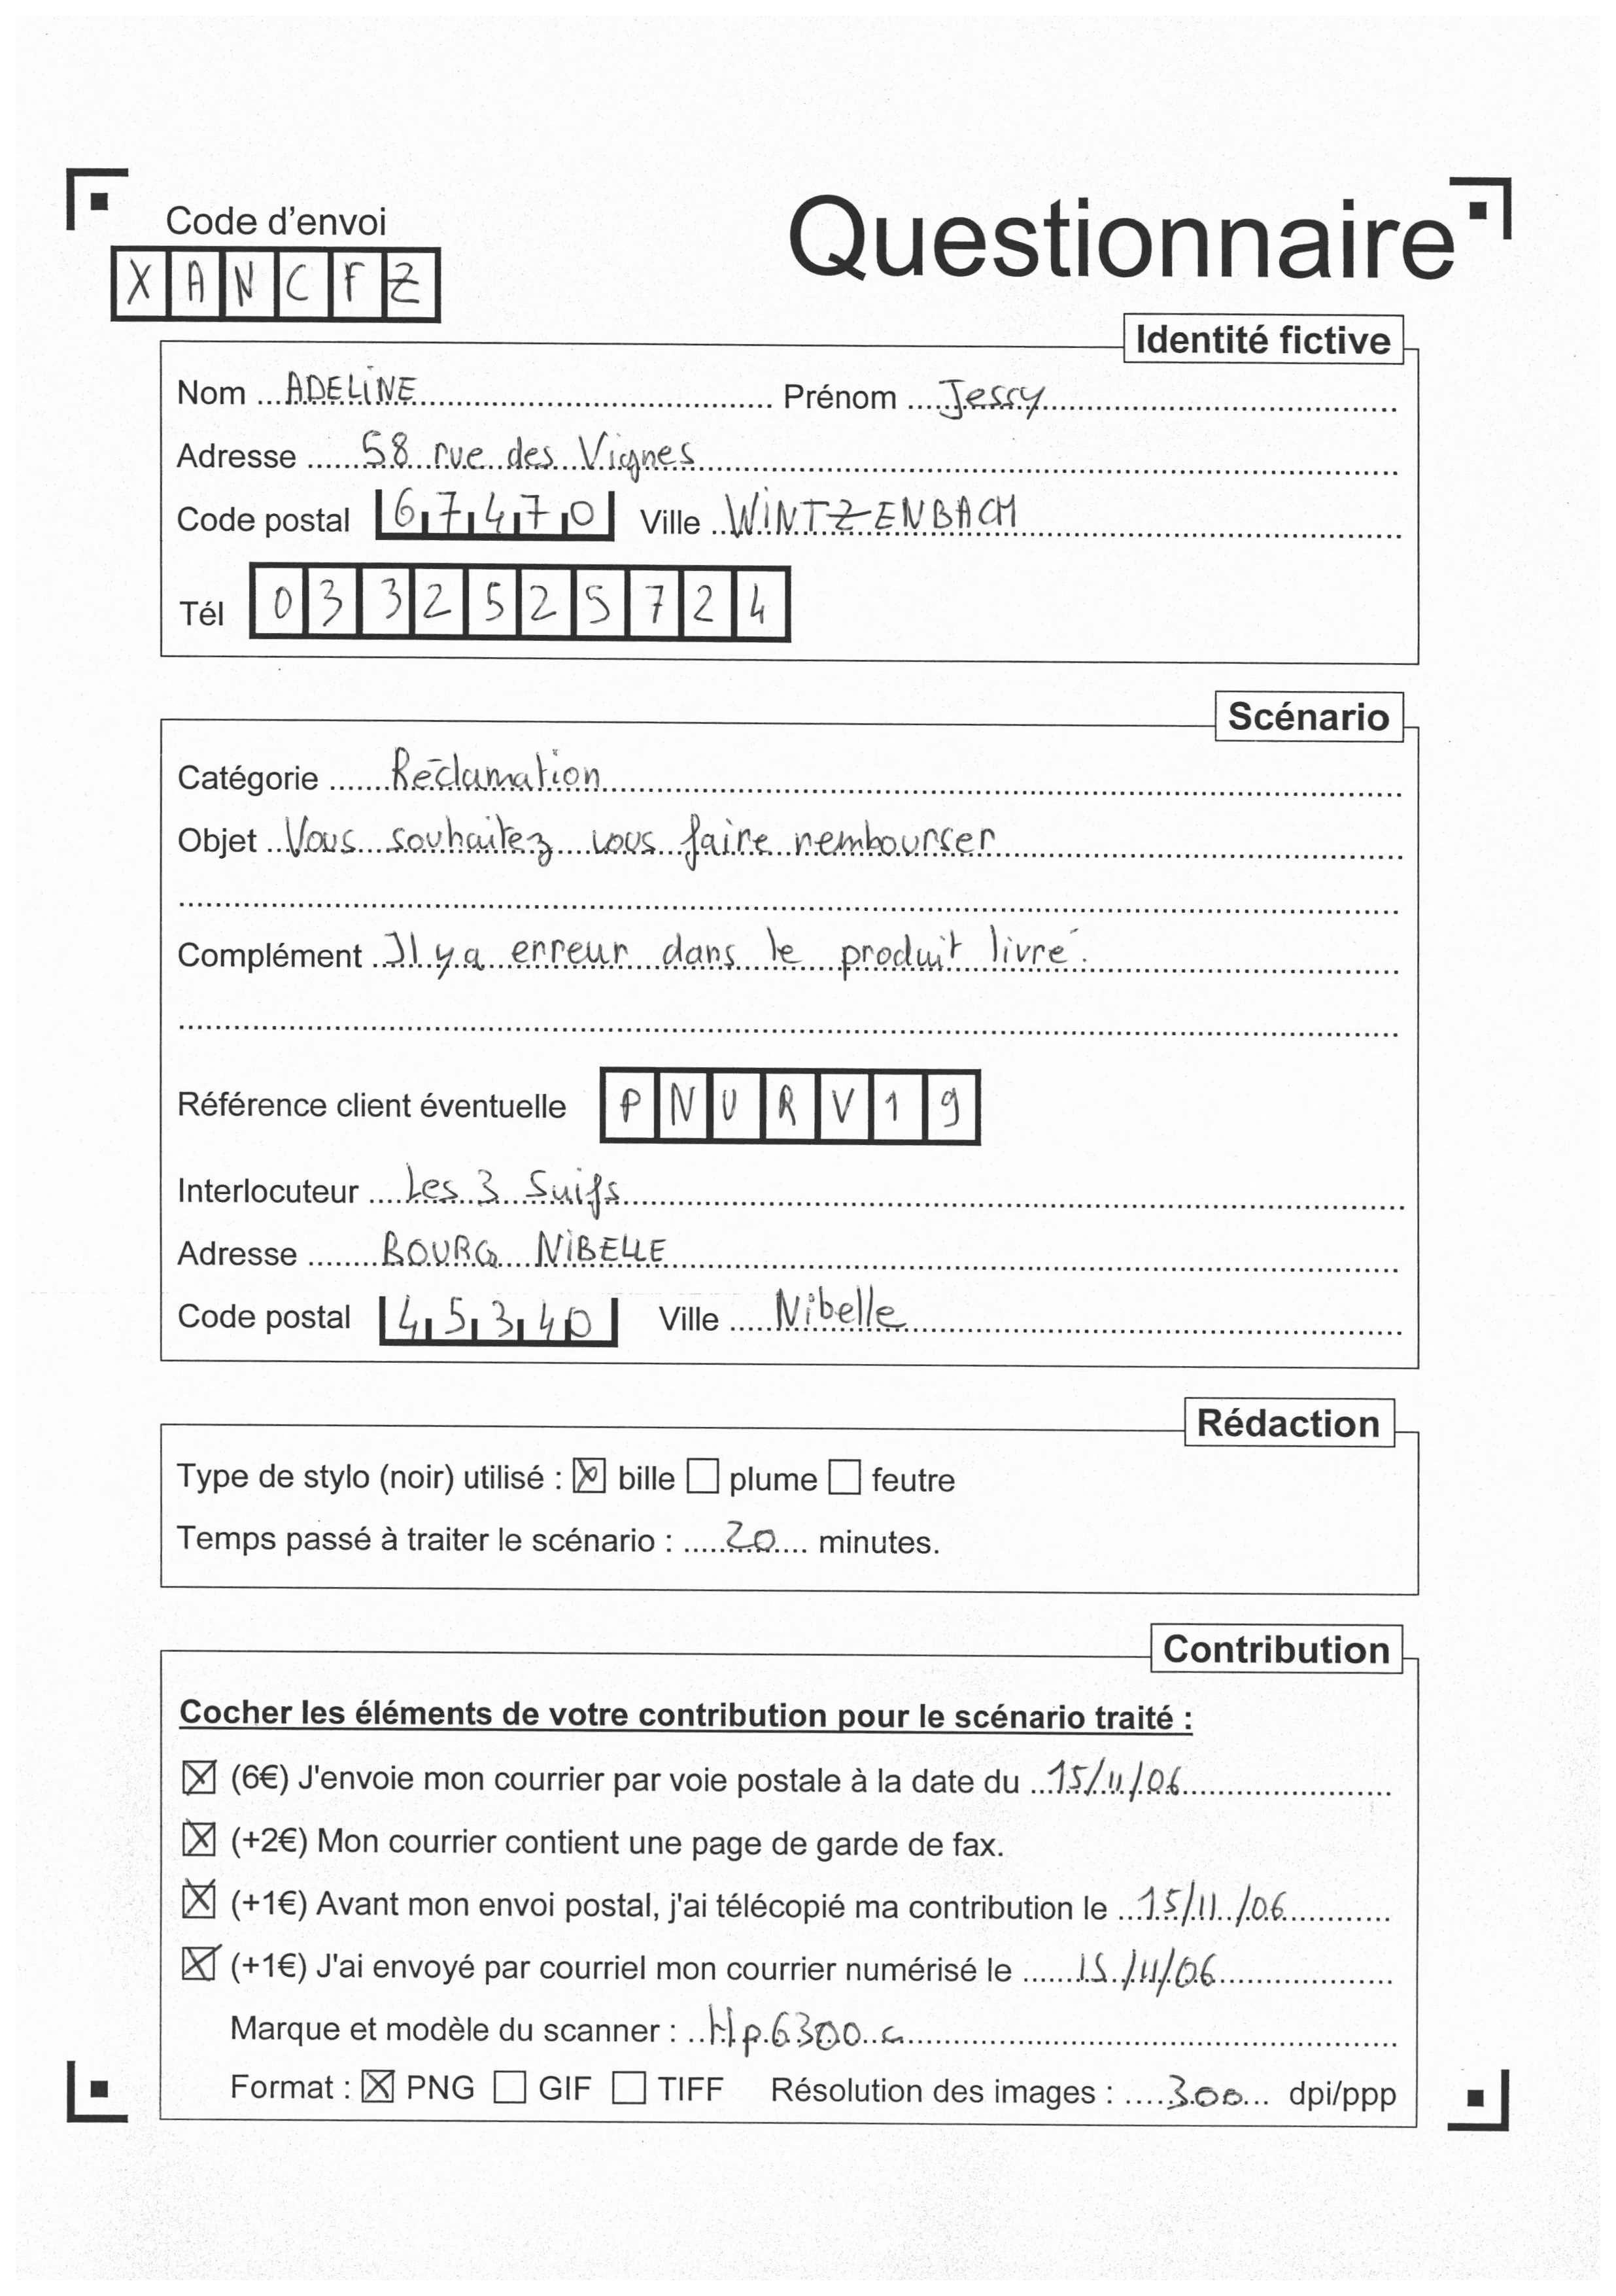 Code d'envoi
Questionnaire
XANCFZ
Identité fictive
Nom ADELINE Prénom Jessy
Adresse 58 rue des Vignes
Code postal 67470 Ville WINTZENBACH
Tél 0332525724
Scénario
Catégorie Réclamation
Objet Vous souhaitez vous faire rembourser
Complément Il y a erreur dans le produit livré.
Référence client éventuelle PNURV19
Interlocuteur Les 3 Suifs
Adresse BOURG NIBELLE
Code postal 45340 Ville Nibelle
Rédaction
Type de stylo (noir) utilisé : ☒ bille ☐ plume ☐ feutre
Temps passé à traiter le scénario : 20 minutes.
Contribution
Cocher les éléments de votre contribution pour le scénario traité :
☒ (6€) J'envoie mon courrier par voie postale à la date du 15/11/06
☒ (+2€) Mon courrier contient une page de garde de fax.
☒ (+1€) Avant mon envoi postal, j'ai télécopié ma contribution le 15/11/06
☒ (+1€) J'ai envoyé par courriel mon courrier numérisé le 15/11/06
Marque et modèle du scanner : Hp 6300 c
Format : ☒ PNG ☐ GIF ☐ TIFF Résolution des images : 300 dpi/ppp